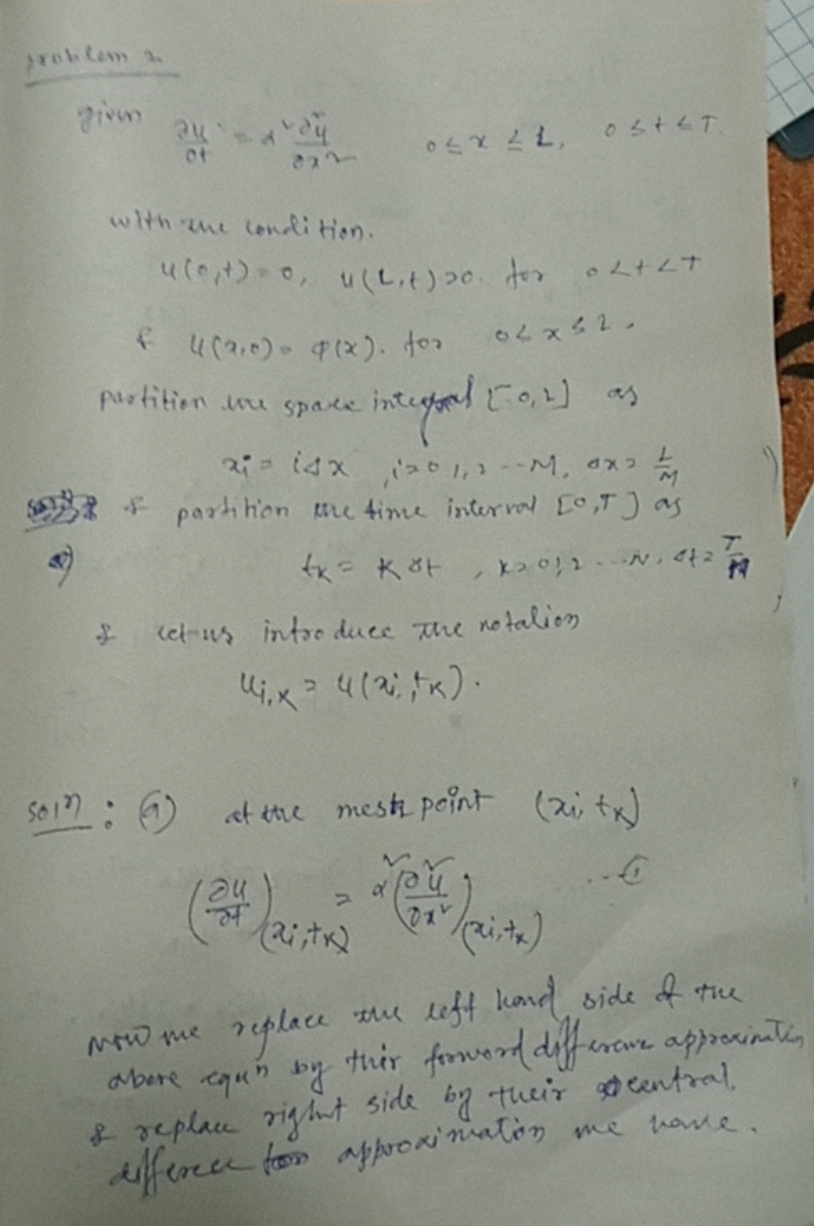 problem 2
given ∂u/∂t = α² ∂²u/∂x² 0 ≤ x ≤ L, 0 ≤ t ≤ T.
with the condition.
u(0,t) = 0, u(L,t) = 0. for 0 < t < T
& u(x,0) = φ(x). for 0 ≤ x ≤ L.
partition the space integral [0,L] as
xi = iΔx, i = 0, 1, 2 --- M, Δx = L/M
& partition the time interval [0,T] as
a) tk = kΔt, k = 0, 1, 2 --- N, Δt = T/N
& let us introduce the notation
ui,k = u(xi, tk).
soln : (a) at the mesh point (xi, tk)
(∂u/∂t)(xi,tk) = α²(∂²u/∂x²)(xi,tk) ---①
now we replace the left hand side of the
above equn by their forward difference approximation
& replace right side by their central
difference approximation we have.